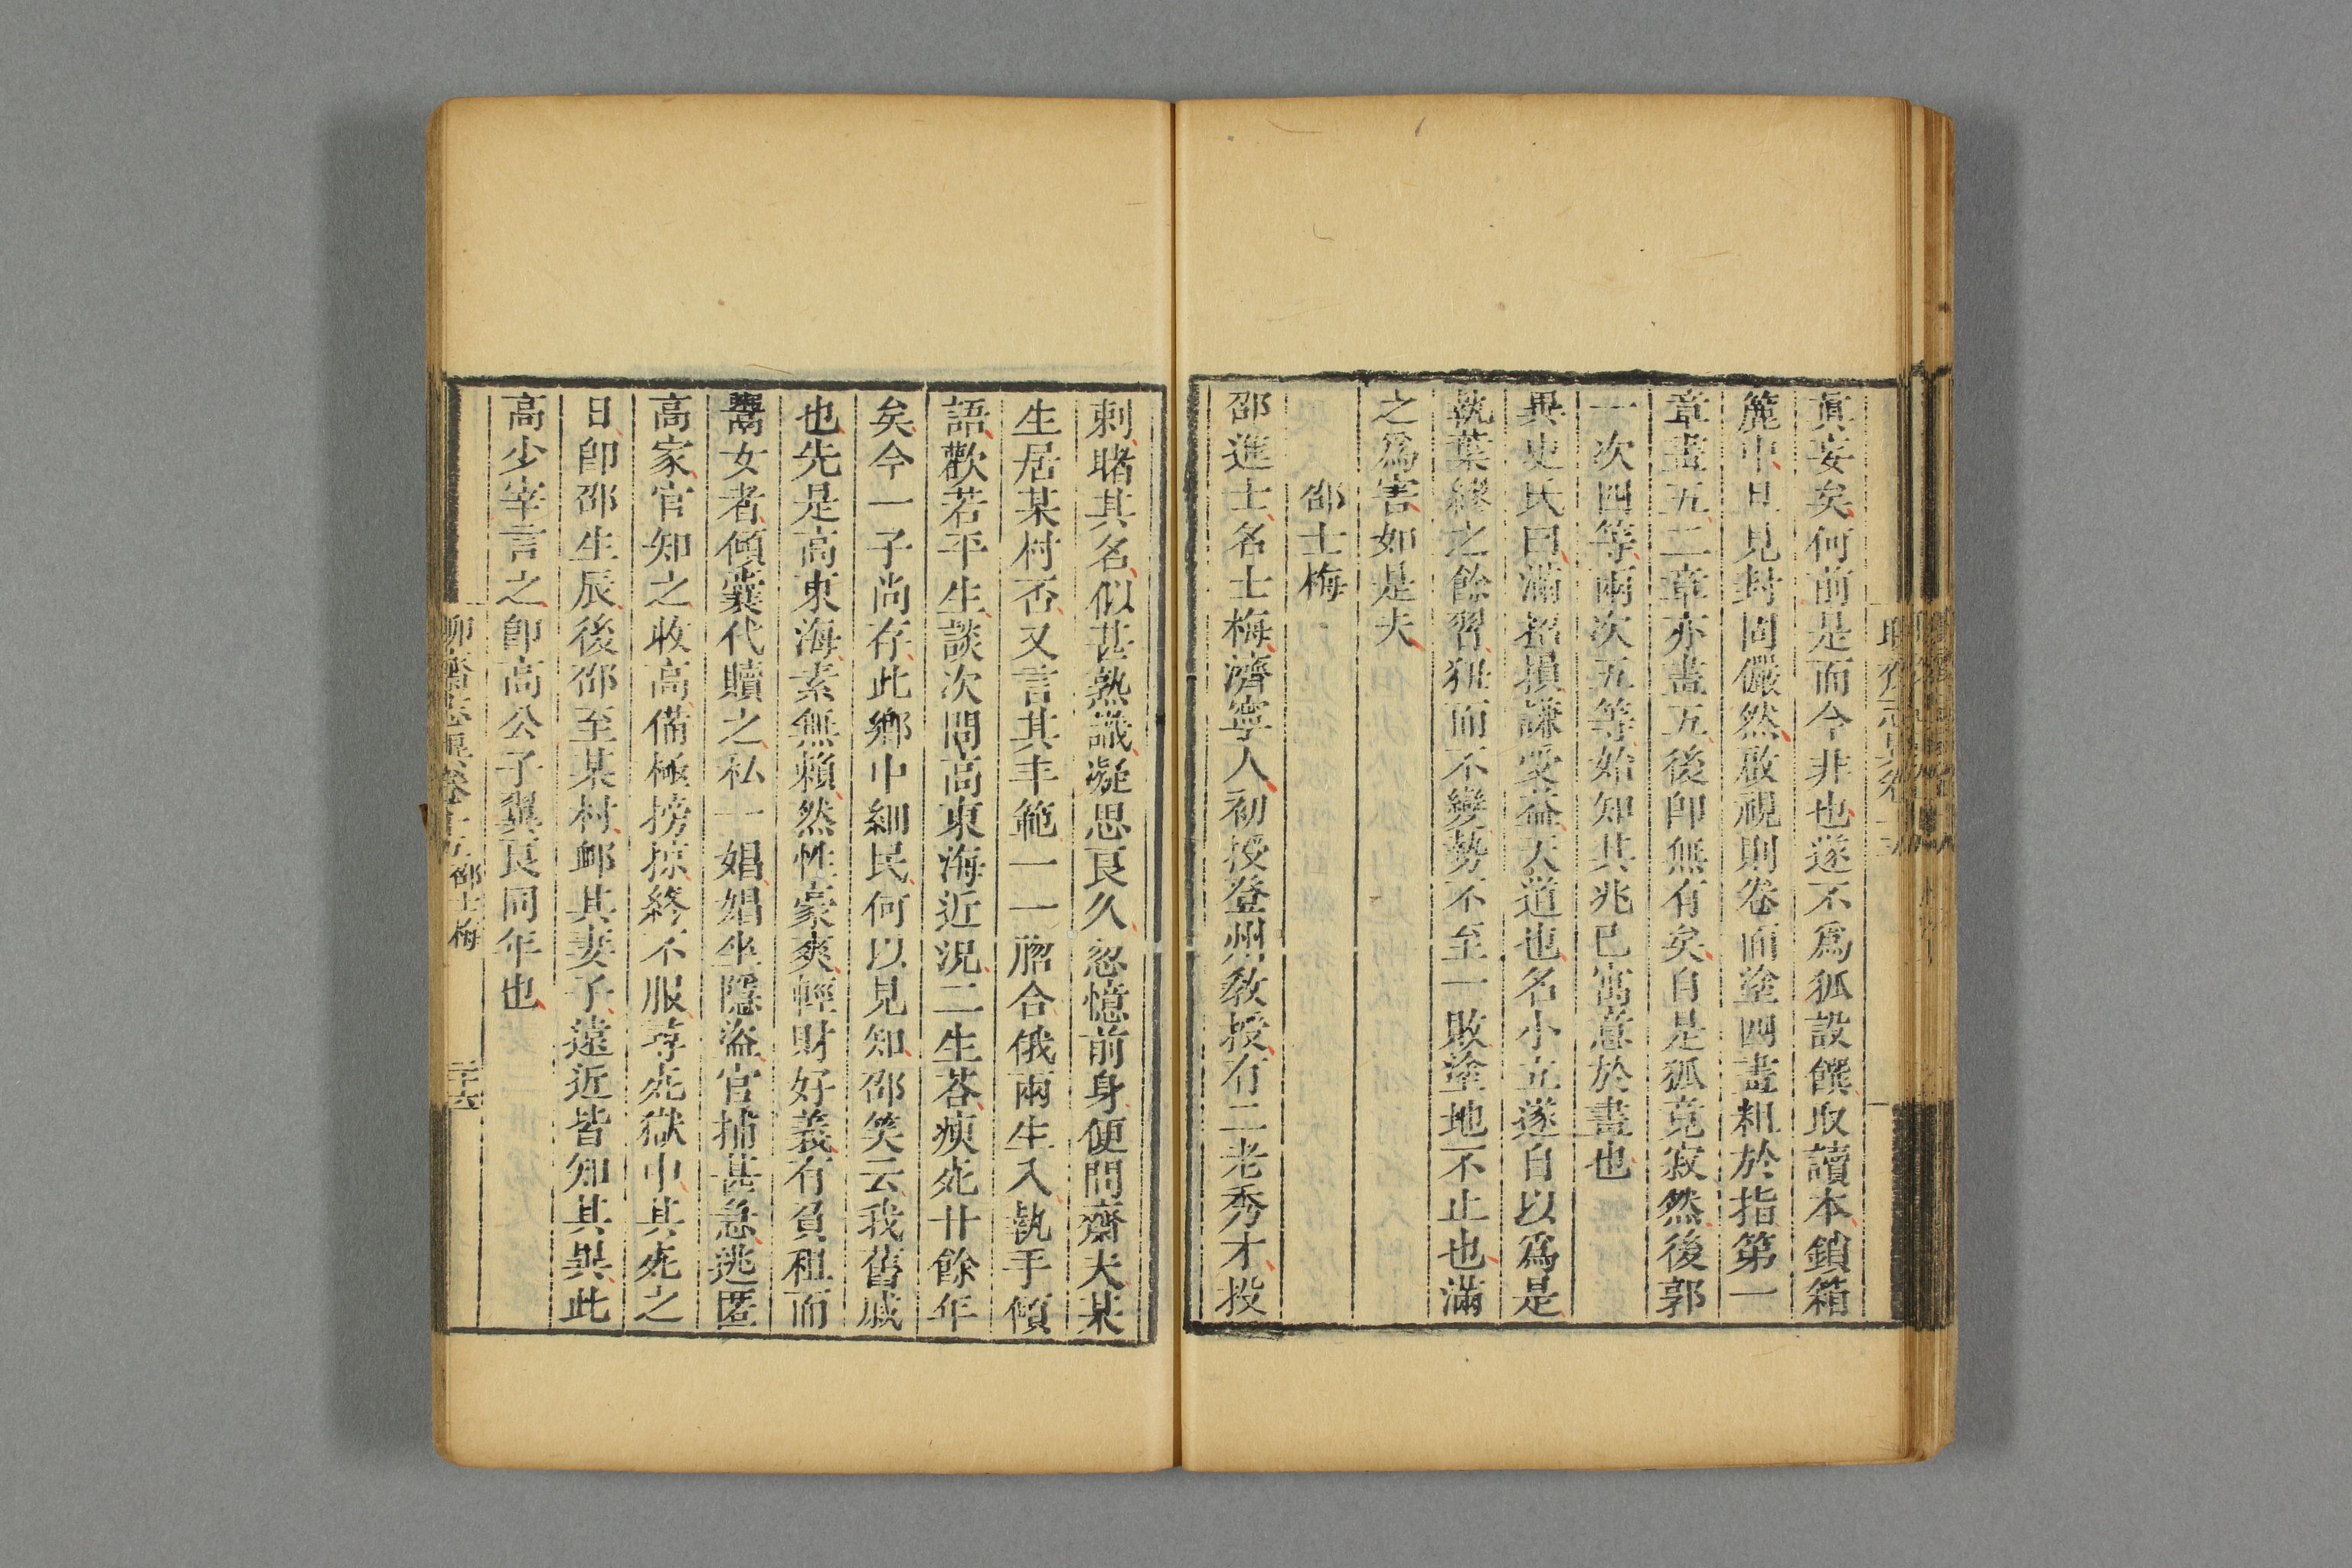 眞妄矣何前是而今非也遂不爲狐設饌取讀本鎖箱
簏中旦見封固儼然啟視則卷面塗四畫粗於指第一
章畫五二章亦畫五後卽無有矣自是狐竟寂然後郭
一次四等兩次五等始知其兆已寓意於畫也
異史氏曰滿招損謙受益天道也名小立遂自以爲是
執葉繆之餘習狃而不變勢不至一敗塗地不止也滿
之爲害如是夫
邵士梅
邵進士名士梅濟寧人初授登州敎授有二老秀才投
刺睹其名似甚熟識凝思良久忽憶前身便問齋夫某
生居某村否又言其丰範一一脗合俄兩生入執手傾
語歡若平生談次問高東海近況二生荅瘐死廿餘年
矣今一子尚存此鄕中細民何以見知邵笑云我舊戚
也先是高東海素無賴然性豪爽輕財好義有負租而
鬻女者傾囊代贖之私一娼娼坐隱盜官捕甚急逃匿
高家官知之收高備極搒掠終不服尋死獄中其死之
日卽邵生辰後邵至某村卹其妻子遠近皆知其異此
高少宰言之卽高公子冀良同年也
聊齋志異卷十五 邵士梅 三十六